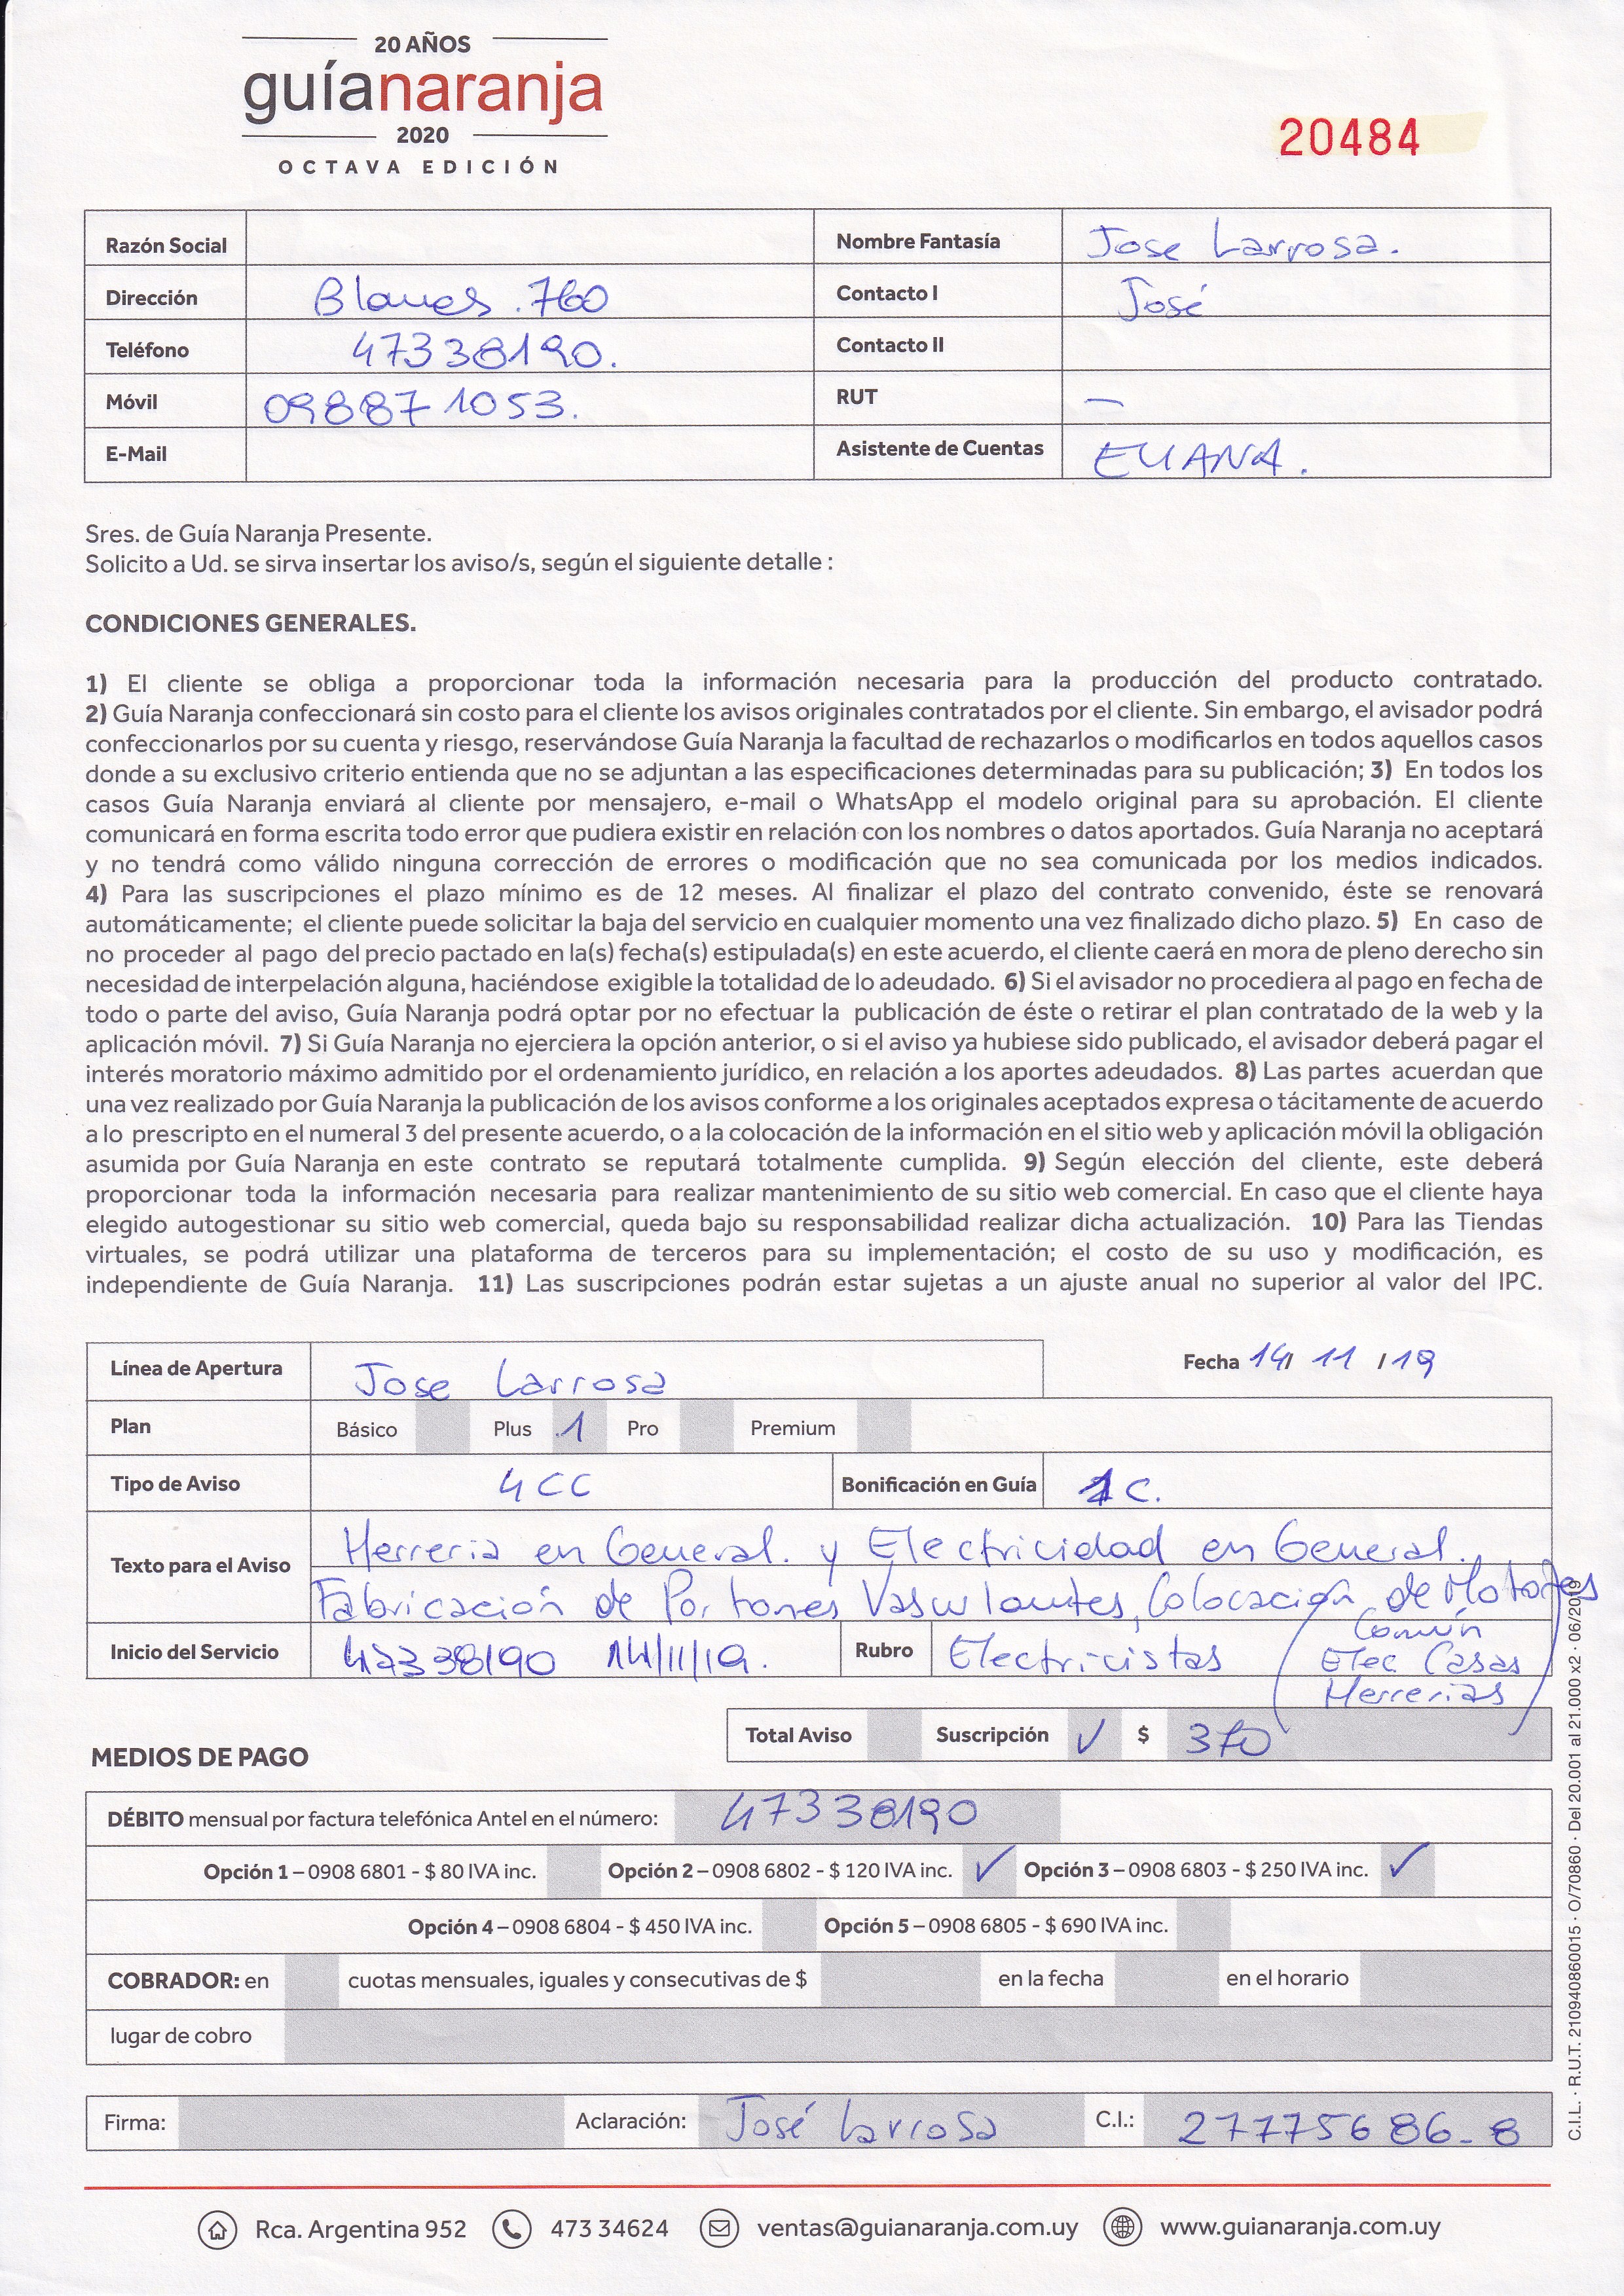 20 AÑOS
guíanaranja
2020
OCTAVA EDICIÓN
20484
Razón Social
Nombre Fantasía Jose Larrosa.
Dirección Blanes .760
Contacto I José
Teléfono 47338190.
Contacto II
Móvil 098871053.
RUT —
E-Mail
Asistente de Cuentas ELIANA.
Sres. de Guía Naranja Presente.
Solicito a Ud. se sirva insertar los aviso/s, según el siguiente detalle :
CONDICIONES GENERALES.
1) El cliente se obliga a proporcionar toda la información necesaria para la producción del producto contratado.
2) Guía Naranja confeccionará sin costo para el cliente los avisos originales contratados por el cliente. Sin embargo, el avisador podrá
confeccionarlos por su cuenta y riesgo, reservándose Guía Naranja la facultad de rechazarlos o modificarlos en todos aquellos casos
donde a su exclusivo criterio entienda que no se adjuntan a las especificaciones determinadas para su publicación; 3) En todos los
casos Guía Naranja enviará al cliente por mensajero, e-mail o WhatsApp el modelo original para su aprobación. El cliente
comunicará en forma escrita todo error que pudiera existir en relación con los nombres o datos aportados. Guía Naranja no aceptará
y no tendrá como válido ninguna corrección de errores o modificación que no sea comunicada por los medios indicados.
4) Para las suscripciones el plazo mínimo es de 12 meses. Al finalizar el plazo del contrato convenido, éste se renovará
automáticamente; el cliente puede solicitar la baja del servicio en cualquier momento una vez finalizado dicho plazo. 5) En caso de
no proceder al pago del precio pactado en la(s) fecha(s) estipulada(s) en este acuerdo, el cliente caerá en mora de pleno derecho sin
necesidad de interpelación alguna, haciéndose exigible la totalidad de lo adeudado. 6) Si el avisador no procediera al pago en fecha de
todo o parte del aviso, Guía Naranja podrá optar por no efectuar la publicación de éste o retirar el plan contratado de la web y la
aplicación móvil. 7) Si Guía Naranja no ejerciera la opción anterior, o si el aviso ya hubiese sido publicado, el avisador deberá pagar el
interés moratorio máximo admitido por el ordenamiento jurídico, en relación a los aportes adeudados. 8) Las partes acuerdan que
una vez realizado por Guía Naranja la publicación de los avisos conforme a los originales aceptados expresa o tácitamente de acuerdo
a lo prescripto en el numeral 3 del presente acuerdo, o a la colocación de la información en el sitio web y aplicación móvil la obligación
asumida por Guía Naranja en este contrato se reputará totalmente cumplida. 9) Según elección del cliente, este deberá
proporcionar toda la información necesaria para realizar mantenimiento de su sitio web comercial. En caso que el cliente haya
elegido autogestionar su sitio web comercial, queda bajo su responsabilidad realizar dicha actualización. 10) Para las Tiendas
virtuales, se podrá utilizar una plataforma de terceros para su implementación; el costo de su uso y modificación, es
independiente de Guía Naranja. 11) Las suscripciones podrán estar sujetas a un ajuste anual no superior al valor del IPC.
Línea de Apertura Jose Larrosa
Fecha 14/ 11 /19
Plan Básico Plus .1 Pro Premium
Tipo de Aviso 4CC Bonificación en Guía 1C.
Texto para el Aviso
Herreria en General. y Electricidad en General.
Fabricación de Portones Vasculantes, Colocación de Motores
Inicio del Servicio 47338190 14/11/19. Rubro Electricistas
(Común
Elec Casas
Herrerias)
Total Aviso Suscripción ✓ $ 370
MEDIOS DE PAGO
DÉBITO mensual por factura telefónica Antel en el número: 47338190
Opción 1 – 0908 6801 - $ 80 IVA inc. Opción 2 – 0908 6802 - $ 120 IVA inc. ✓ Opción 3 – 0908 6803 - $ 250 IVA inc. ✓
Opción 4 – 0908 6804 - $ 450 IVA inc. Opción 5 – 0908 6805 - $ 690 IVA inc.
COBRADOR: en cuotas mensuales, iguales y consecutivas de $ en la fecha en el horario
lugar de cobro
Firma: Aclaración: José Larrosa C.I.: 27775686-8
C.I.L. · R.U.T. 210940860015 · O/70860 · Del 20.001 al 21.000 x2 · 06/2019
Rca. Argentina 952 473 34624 ventas@guianaranja.com.uy www.guianaranja.com.uy